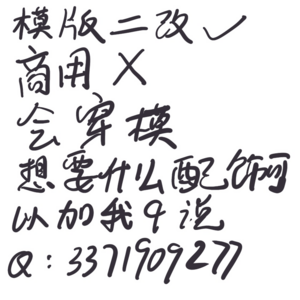 模版二改✓
商用✗
会穿模
想要什么配饰可
以加我q说
Q:3371909277